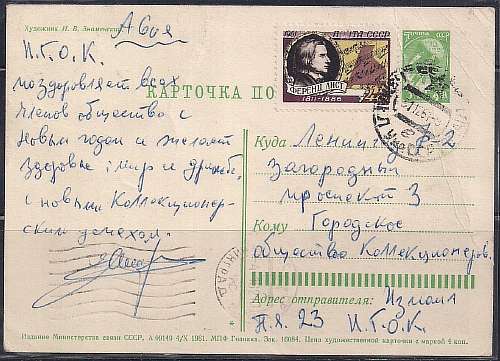 Художник И. В. Знаменский
Авиа
И.Г.О.К.
поздравляет всех
членов общества с
Новым годом и желает
здоровье, мир и дружбе,
с новыми Коллекционер-
ским успехом.
ПОЧТА СССР
ФЕРЕНЦ ЛИСТ
1811-1886
КАРТОЧКА ПО
Куда Ленинград Ф-2
Загородный
проспект 3
Кому Городское
общество Коллекционеров.
Адрес отправителя: Измаил
П.Я. 23 И.Г.О.К.
Издание Министерства связи СССР. А 09149 4/X 1961. МПФ Гознака. Зак. 16084. Цена художественной карточки с маркой 4 коп.